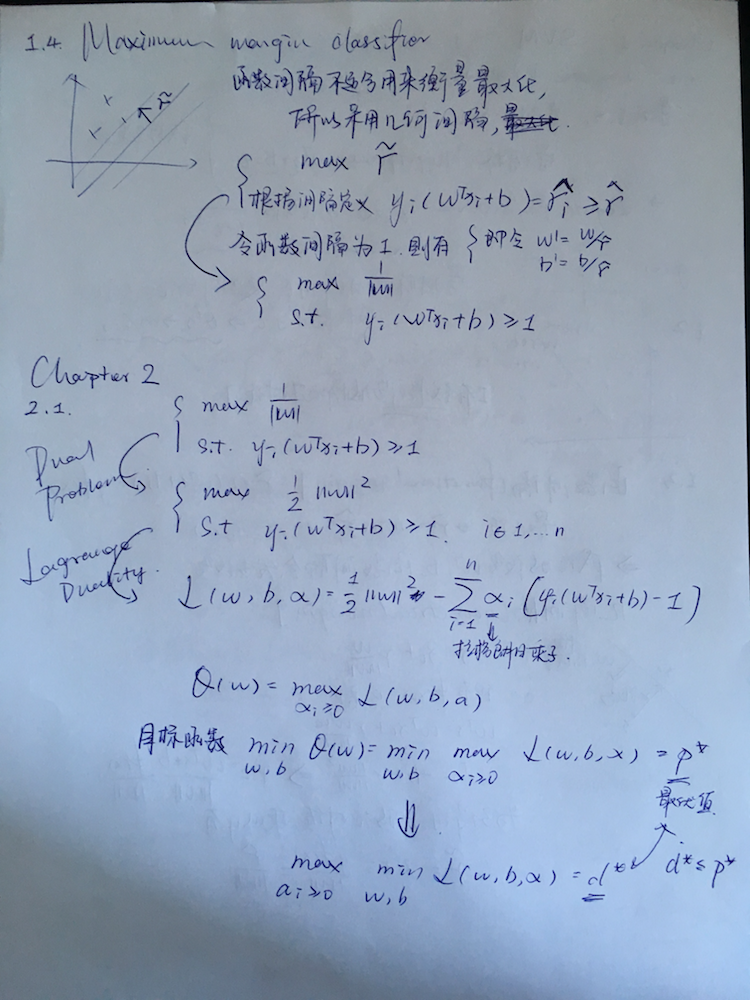 1.4. Maximum margin classifier
r̃
函数间隔不适合用来衡量最大化,
所以采用几何间隔,
max r̃
根据间隔定义 yᵢ(wᵀxᵢ+b)=r̂ᵢ ≥ r̂
令函数间隔为1.则有 { 即令 w'= w/r̂
b'= b/r̂
max 1/||w||
s.t. yᵢ(wᵀxᵢ+b)≥1
Chapter 2
2.1.
{ max 1/||w||
s.t. yᵢ(wᵀxᵢ+b)≥1
Dual
Problem.
{ max 1/2 ||w||²
s.t yᵢ(wᵀxᵢ+b)≥1. i∈1,...n
Lagrange
Duality.
L(w,b,α)=1/2||w||² - Σᵢ₌₁ⁿ αᵢ[yᵢ(wᵀxᵢ+b)-1]
⇓
拉格朗日乘子.
θ(w)= max_{αᵢ≥0} L(w,b,a)
目标函数 min_{w,b} θ(w)= min_{w,b} max_{αᵢ≥0} L(w,b,x) = p*
最优值
⇓
max_{aᵢ≥0} min_{w,b} L(w,b,α) = d* d*≤p*